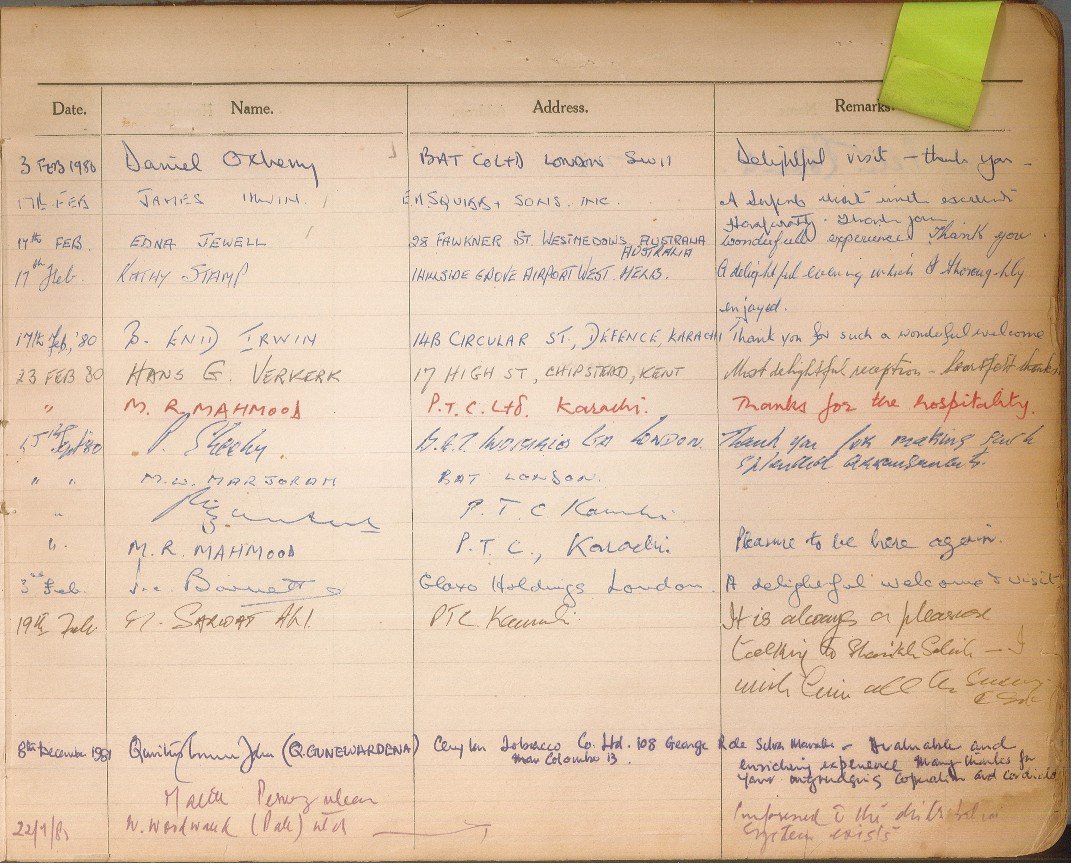 Date. Name. Address. Remarks.
3 FEB 1980 Daniel Oxberry BAT Co LTD LONDON SW11 Delightful visit - thank you -
17th FEB JAMES IRWIN. ER SQUIBB + SONS. INC. A superb visit with excellent
Hospitality. Thank you.
17th FEB. EDNA JEWELL 28 FAWKNER ST. WESTMEADOWS, AUSTRALIA Wonderfull experience. Thank you
AUSTRALIA
17th Feb KATHY STAMP 1 HILLSIDE GROVE AIRPORT WEST. MELB. A delightful evening which I thoroughly
enjoyed.
17th Feb, '80 B. ENID IRWIN 14B CIRCULAR ST., DEFENCE, KARACHI Thank you for such a wonderful welcome
23 FEB 80 HANS G. VERKERK 17 HIGH ST, CHIPSTEAD, KENT Most delightful reception - heartfelt thanks
" M. R. MAHMOOD P.T.C. Ltd. Karachi. Thanks for the hospitality.
Sept '80 P. Sheehy B.A.T. INDUSTRIES LONDON. Thank you for making such
splendid arrangements.
" " M.W. MARJORAM BAT LONDON.
" P.T.C Karachi.
". M. R. MAHMOOD P.T.C., Karachi. Pleasure to be here again.
3rd Feb. Barnett Glaxo Holdings London. A delightful welcome & visit
19th SARWAT ALI. PTC Karachi It is always a pleasure
talking to Shaikh - I
wish him all the
8th December 1981 (Q. GUNEWARDENA) Ceylon Tobacco Co. Ltd. 108 George R de Silva Mawatha - Invaluable and
Colombo 13. enriching experience Many thanks for
your ungrudging and
Pervez
W. Woodward (Pak) Ltd to the
22/9/81 system exists